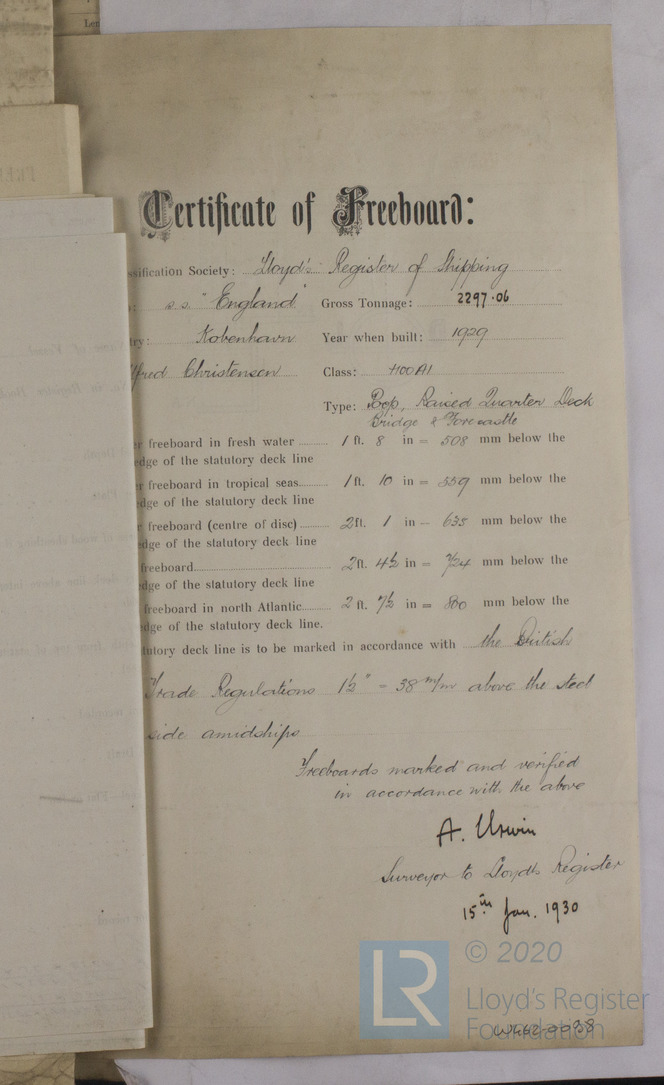 Len
Certificate of Freeboard:
ssification Society: Lloyd's Register of Shipping
: s.s. "England" Gross Tonnage: 2297.06
try: Kobenhavn Year when built: 1929
lfred Christensen Class: +100A1
Type: Poop, Raised Quarter Deck
Bridge & Forecastle
r freeboard in fresh water ........ 1 ft. 8 in = 508 mm below the
edge of the statutory deck line
r freeboard in tropical seas........ 1 ft. 10 in = 559 mm below the
edge of the statutory deck line
r freeboard (centre of disc) ........ 2 ft. 1 in = 635 mm below the
edge of the statutory deck line
freeboard........ 2 ft. 4½ in = 724 mm below the
edge of the statutory deck line
freeboard in north Atlantic........ 2 ft. 7½ in = 800 mm below the
edge of the statutory deck line.
tutory deck line is to be marked in accordance with the British
Trade Regulations 1½" = 38 m/m above the steel
side amidships
Freeboards marked and verified
in accordance with the above
A. Urwin
Surveyor to Lloyd's Register
15th Jan. 1930
LR
© 2020
Lloyd's Register
Foundation
W462-0038